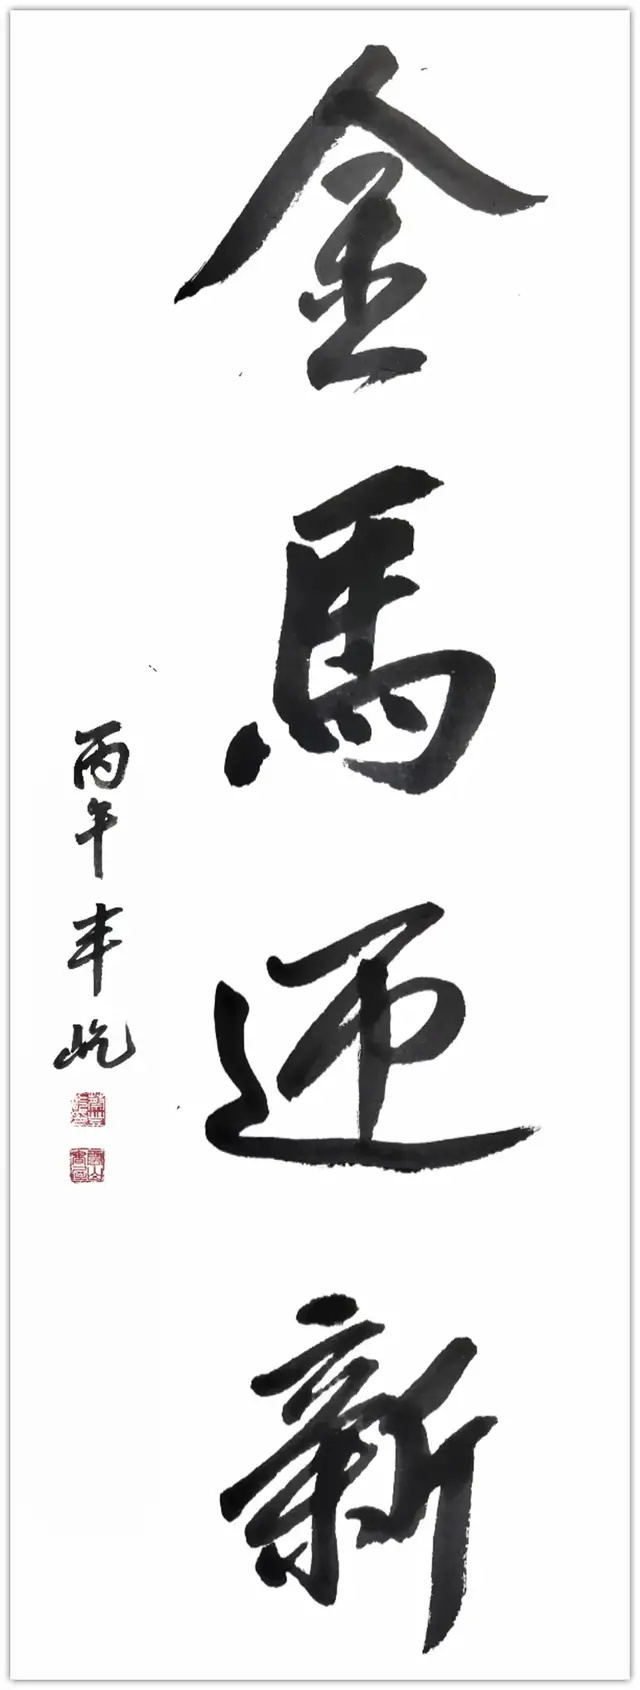 金馬迎新
丙午丰屹